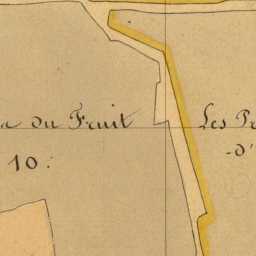 du Fruit
10.
Les
-d'